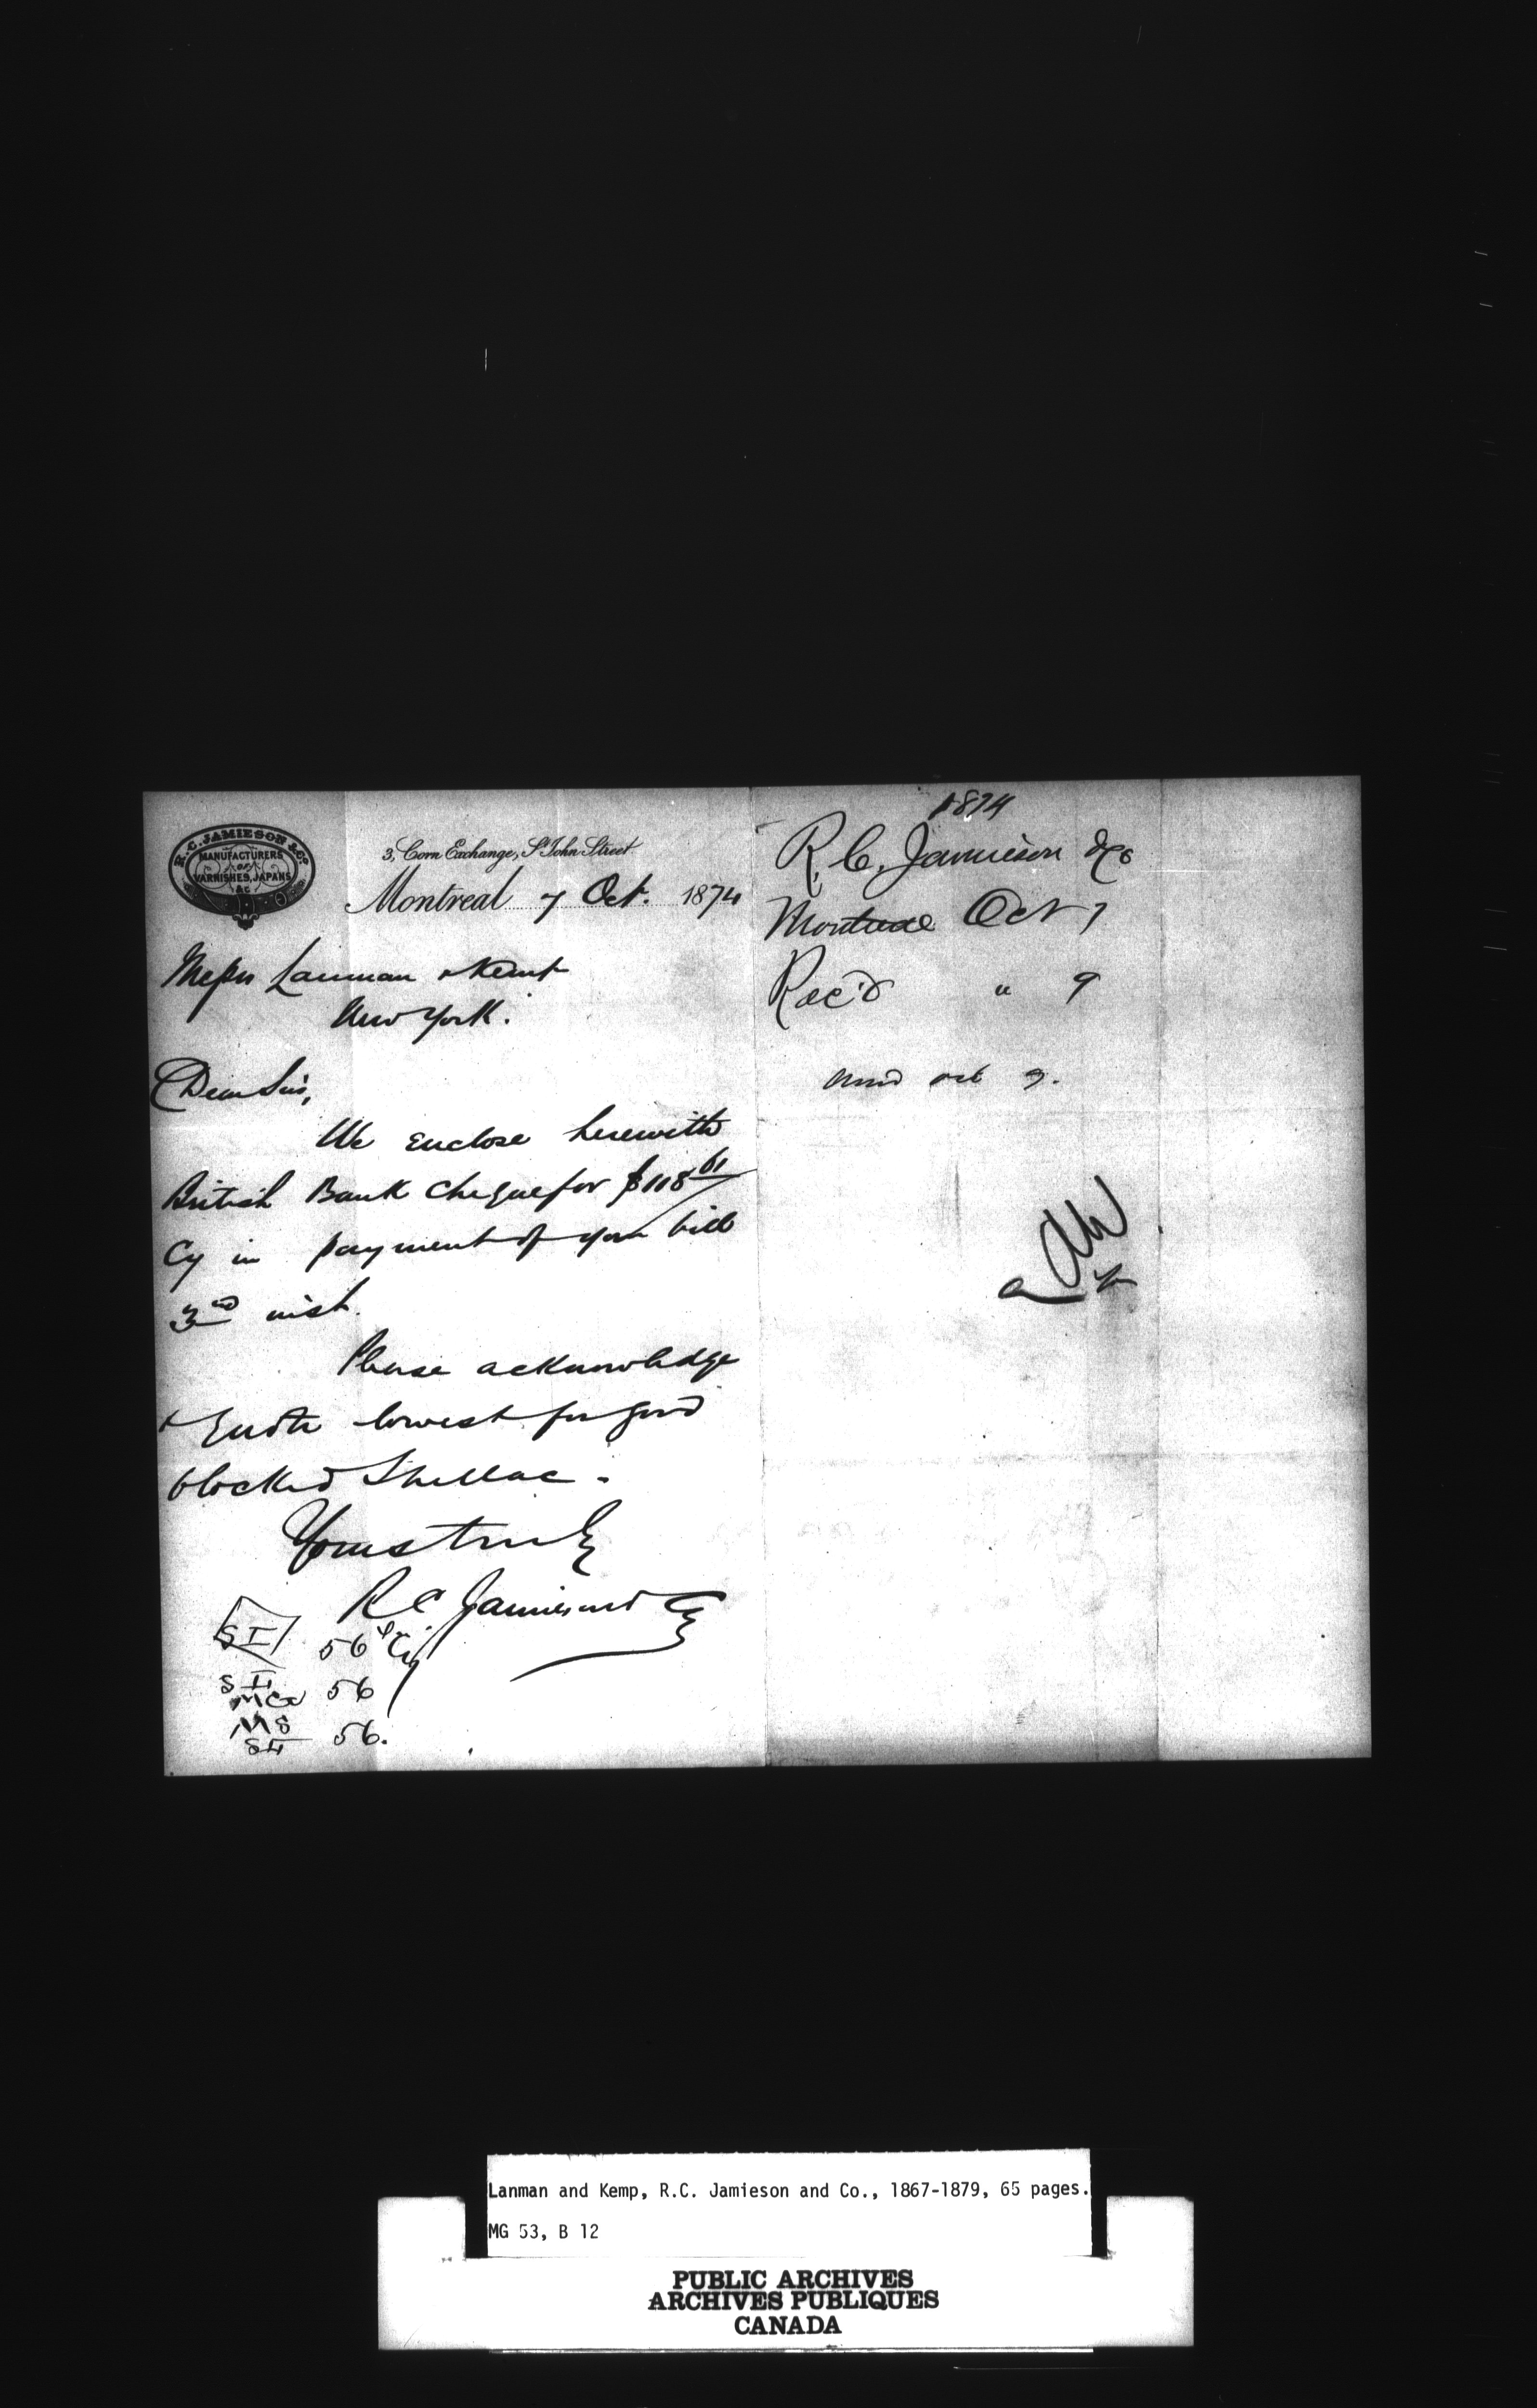 R.C. JAMIESON & CO.
MANUFACTURERS
OF
VARNISHES, JAPANS
&c
3, Corn Exchange, St John Street
Montreal 7 Oct. 1874
Messrs Lanman & Kemp
New York.
Dear Sirs,
We enclose herewith
British Bank cheque for $118 61
Cy in payment of your bill
3rd inst.
Please acknowledge
& quote lowest for good
blocked Shellac.
Yours truly
R C Jamieson & Co
S I 56 Cy
S I 56
M S 56.
1874
R. C. Jamieson & Co
Montreal Oct 7
Rec'd " 9
Oct 9.
Lanman and Kemp, R.C. Jamieson and Co., 1867-1879, 65 pages.
MG 53, B 12
PUBLIC ARCHIVES
ARCHIVES PUBLIQUES
CANADA